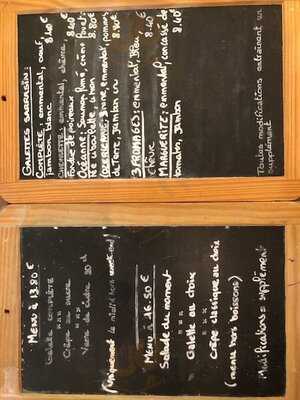 GALETTES SARRASIN :
COMPLÈTE : emmental, oeuf,
jambon blanc 8.40€
emmental, chèvre,
8.40€
Océanne : saumon fumé, crème
ciboulette, citron 8.80€
crème, emmental, pommes
de terre, jambon cru 8.90€
3 FROMAGES : emmental, Bleu,
chèvre 8.40€
MARGUERITE : emmental, concassé de
tomates, jambon 8.40€
Toutes modifications entraînent un
supplément
MENU à 13.80€
Galette complète
***
Crêpe au sucre
***
Verre de cidre 20 cl
(uniquement le midi
MENU à 16.50€
Salade du moment
***
Galette au choix
***
Crêpe classique au choix
(menu hors boissons)
Modifications = supplément